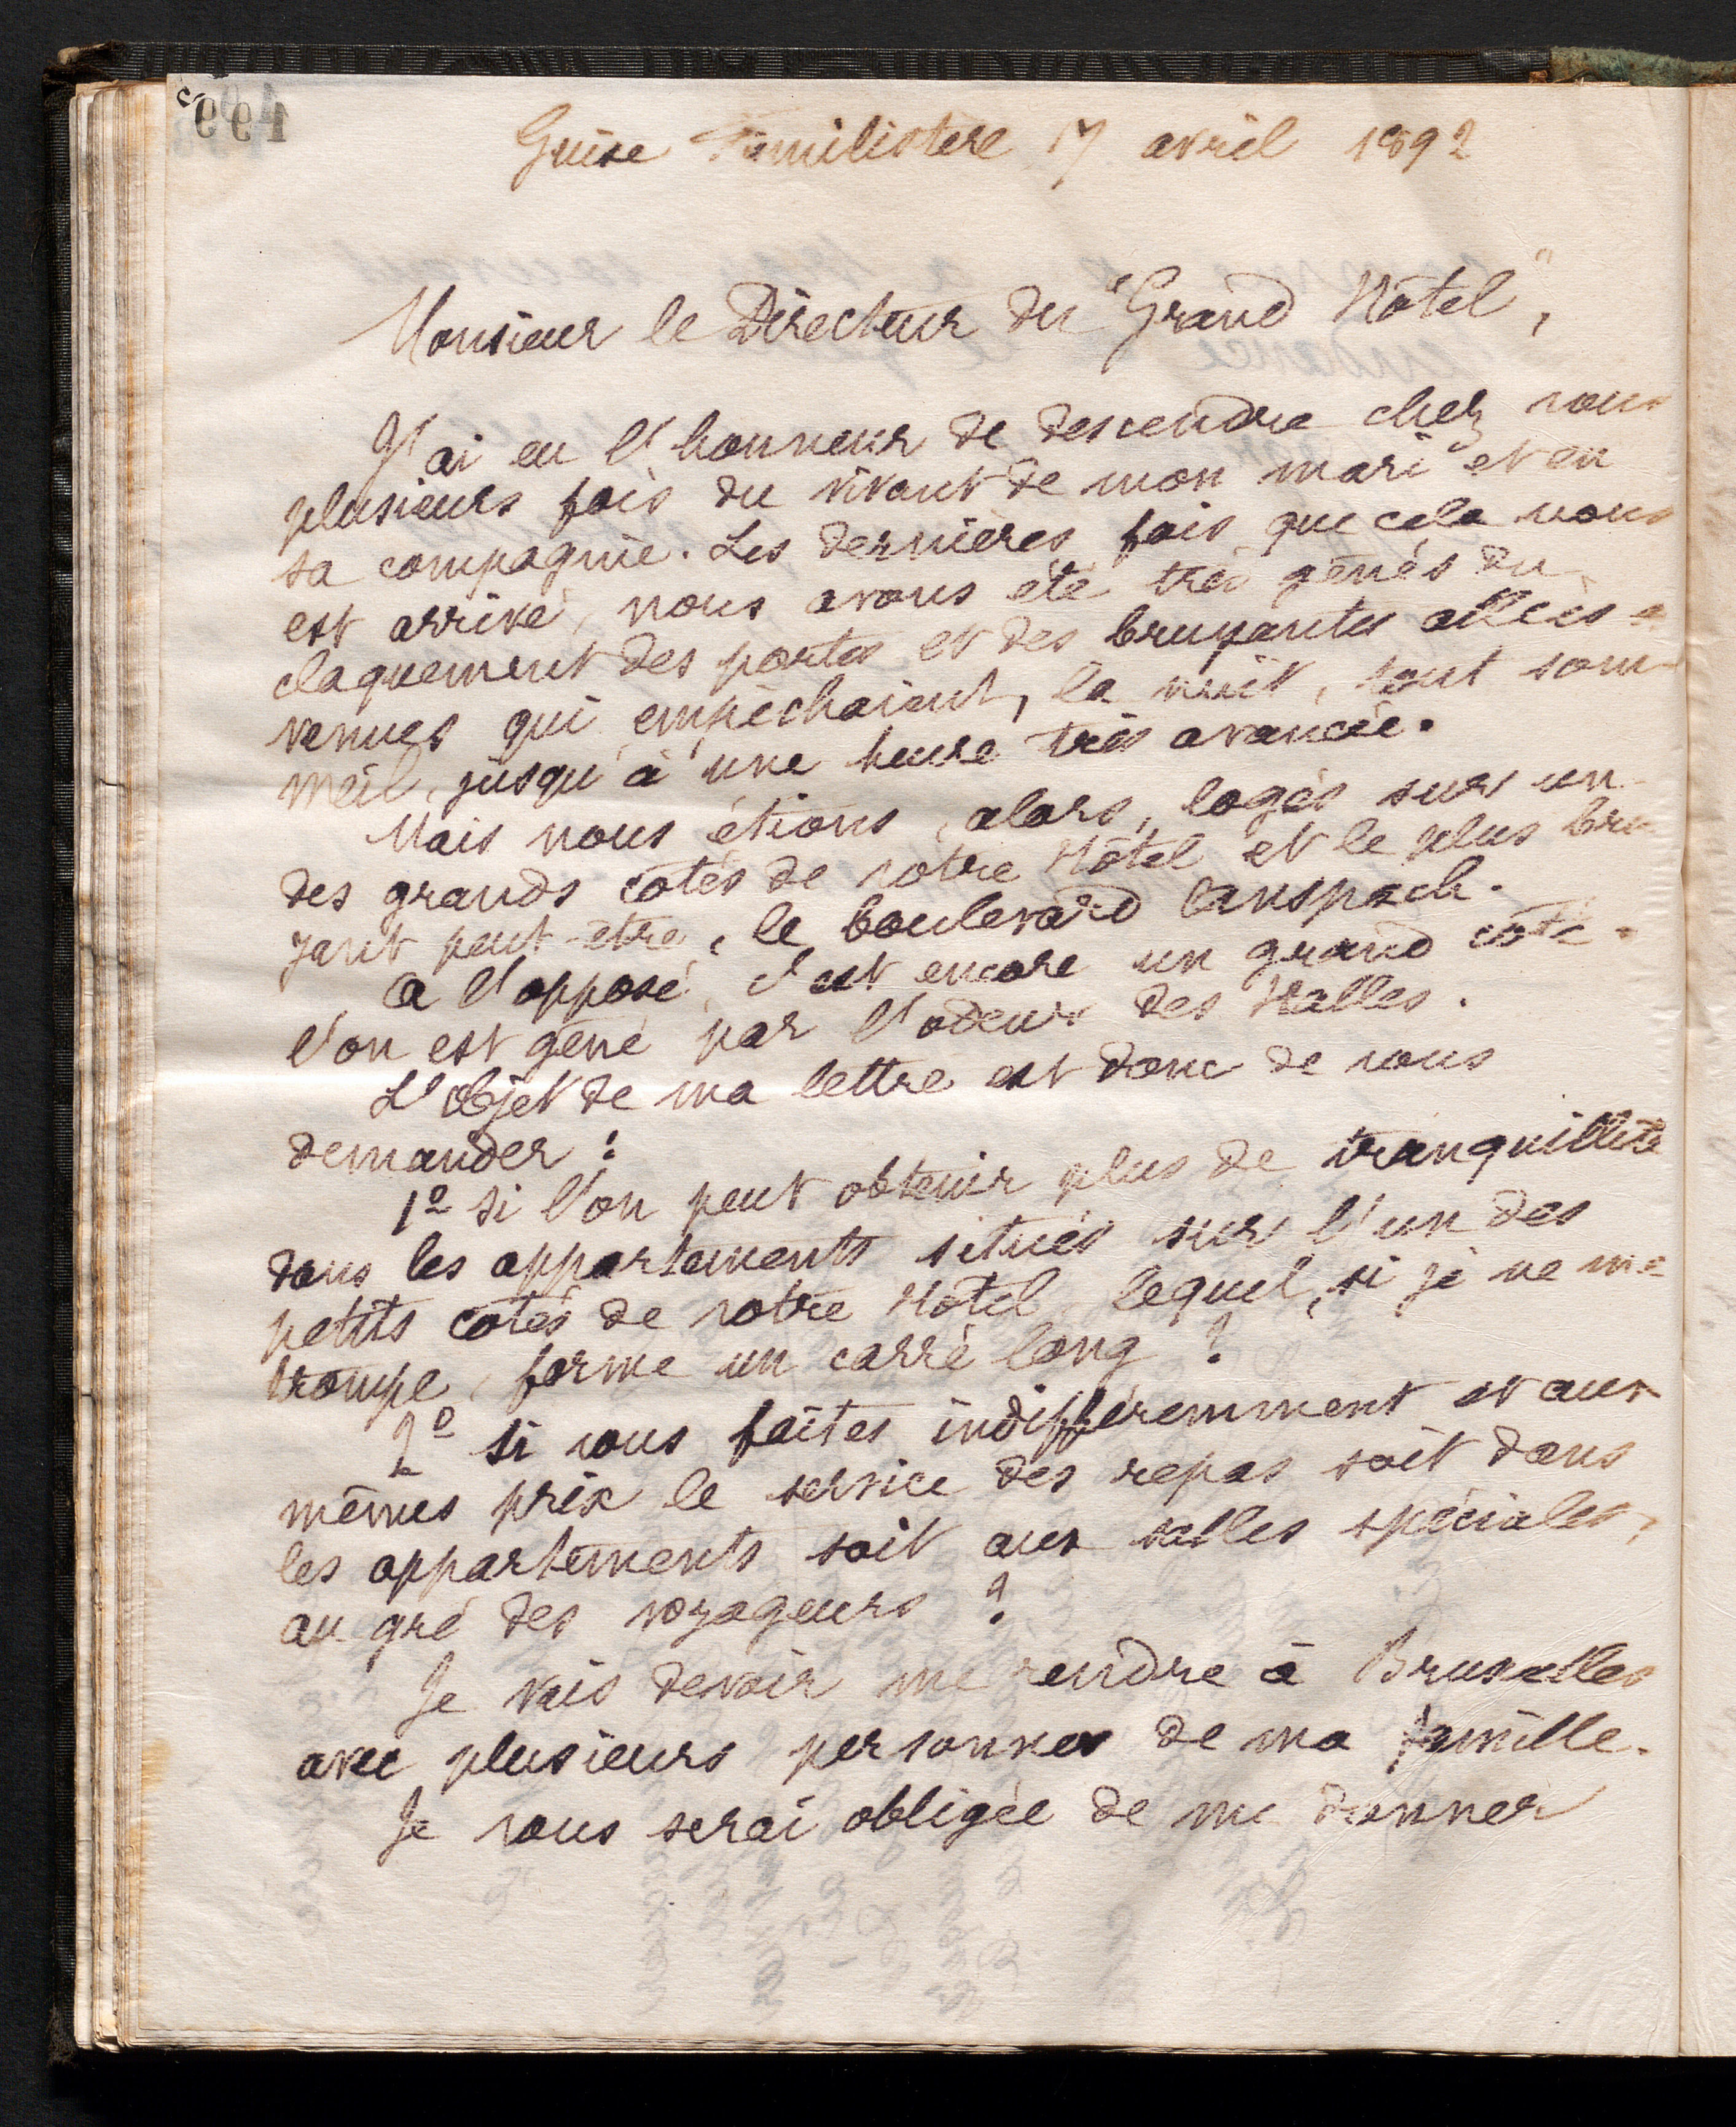 Guise Familistère 17 avril 1892
Monsieur le Directeur du "Grand Hôtel",
J'ai eu l'honneur de descendre chez vous
plusieurs fois du vivant de mon mari et en
sa compagnie. Les dernières fois que cela nous
est arrivé, nous avons été très gênés du
claquement des portes et des bruyantes allées-
venues qui empêchaient, la nuit, tout som-
meil, jusqu'à une heure très avancée.
Mais nous étions, alors, logés sur un
des grands côtés de votre Hôtel et le plus bru-
yant peut-être, le boulevard Anspach.
A l'opposé, c'est encore un grand côté.
l'on est gêné par l'odeur des Halles.
L'objet de ma lettre est donc de vous
demander :
1º si l'on peut obtenir plus de tranquillité
dans les appartements situés sur l'un des
petits côtés de votre Hôtel, lequel, si je ne me
trompe, forme un carré long ?
2º si vous faites indifféremment et aux
mêmes prix le service des repas soit dans
les appartements soit aux salles spéciales,
au gré des voyageurs ?
Je vais devoir me rendre à Bruxelles
avec plusieurs personnes de ma famille.
Je vous serai obligée de me donner